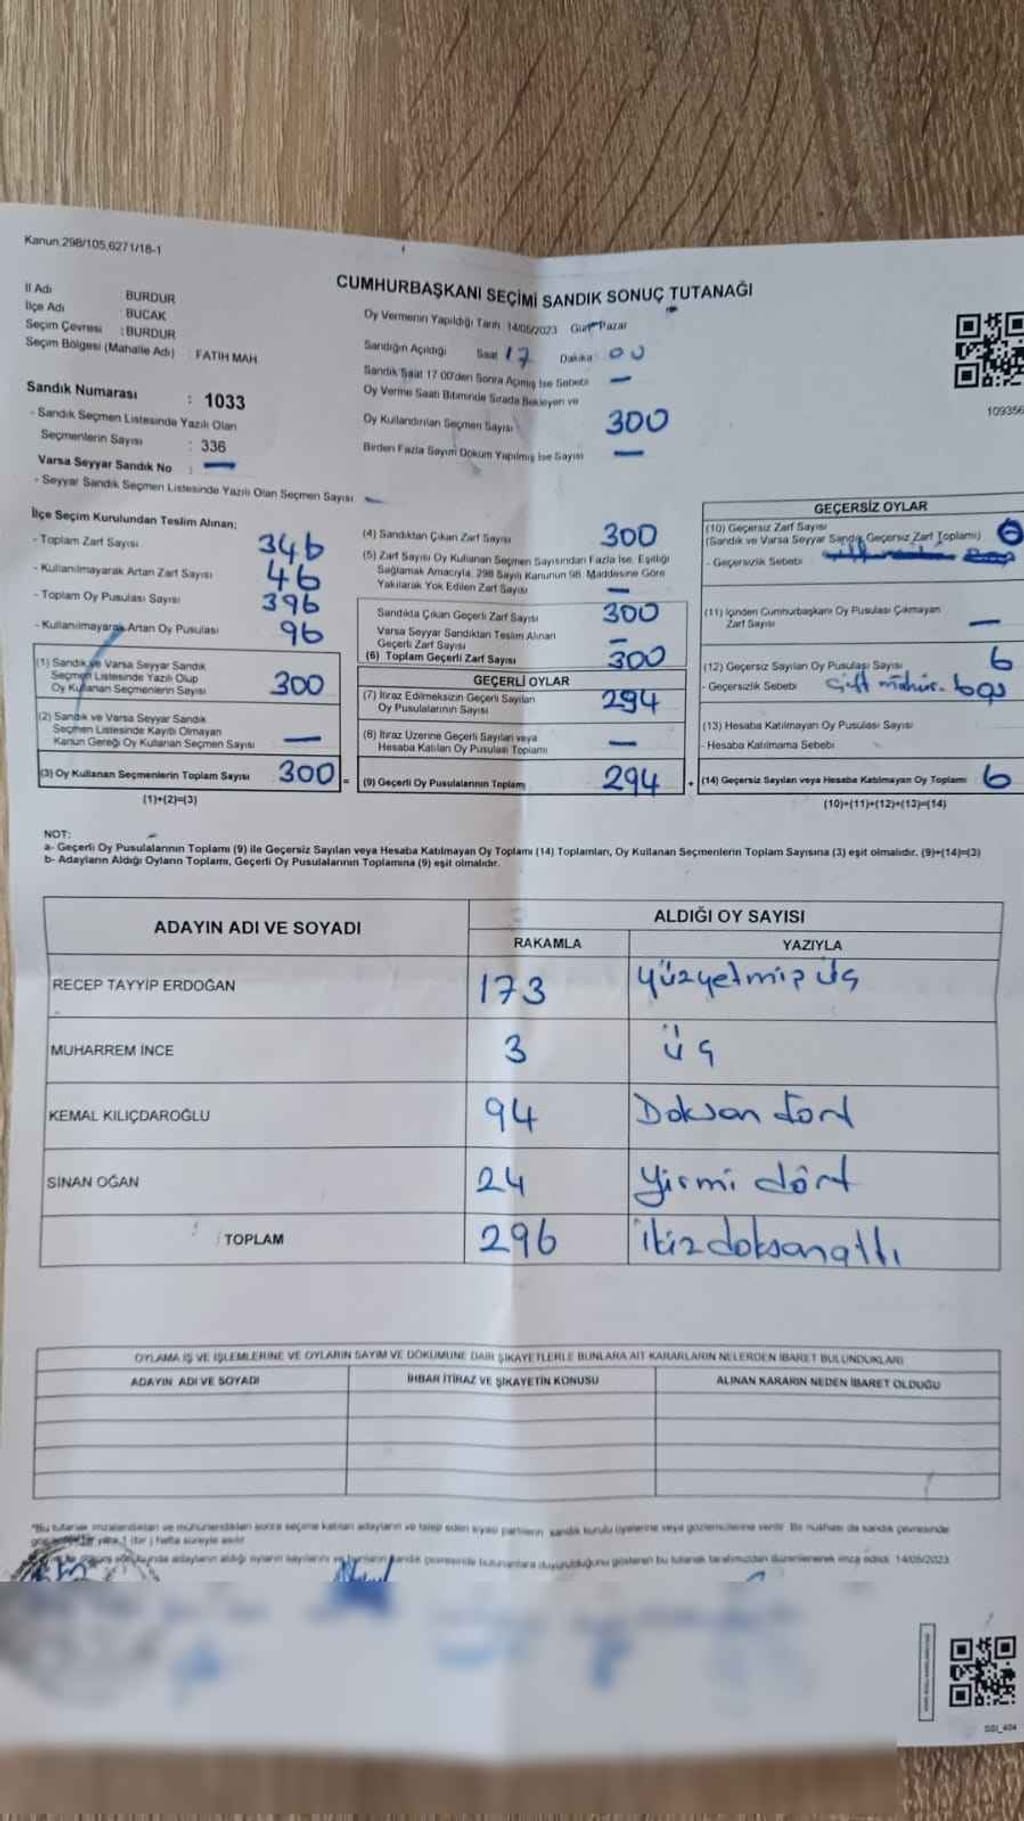 Kanun.298/105,6271/18-1
CUMHURBAŞKANI SEÇİMİ SANDIK SONUÇ TUTANAĞI
İl Adı BURDUR
İlçe Adı BUCAK
Seçim Çevresi : BURDUR
Seçim Bölgesi (Mahalle Adı) FATİH MAH.
Sandık Numarası : 1033
- Sandık Seçmen Listesinde Yazılı Olan
Seçmenlerin Sayısı : 336
Varsa Seyyar Sandık No : —
- Seyyar Sandık Seçmen Listesinde Yazılı Olan Seçmen Sayısı —
Oy Vermenin Yapıldığı Tarih 14/05/2023 Gün Pazar
Sandığın Açıldığı Saat 17 Dakika 00
Sandık Saat 17.00'den Sonra Açılmış İse Sebebi —
Oy Verme Saati Bitiminde Sırada Bekleyen ve
Oy Kullandırılan Seçmen Sayısı 300
Birden Fazla Sayım Döküm Yapılmış İse Sayısı —
109356
İlçe Seçim Kurulundan Teslim Alınan;
- Toplam Zarf Sayısı 346
- Kullanılmayarak Artan Zarf Sayısı 46
- Toplam Oy Pusulası Sayısı 396
- Kullanılmayarak Artan Oy Pusulası 96
(1) Sandık ve Varsa Seyyar Sandık
Seçmen Listesinde Yazılı Olup
Oy Kullanan Seçmenlerin Sayısı 300
(2) Sandık ve Varsa Seyyar Sandık
Seçmen Listesinde Kayıtlı Olmayan
Kanun Gereği Oy Kullanan Seçmen Sayısı —
(3) Oy Kullanan Seçmenlerin Toplam Sayısı 300 =
(1)+(2)=(3)
(4) Sandıktan Çıkan Zarf Sayısı 300
(5) Zarf Sayısı Oy Kullanan Seçmen Sayısından Fazla İse, Eşitliği
Sağlamak Amacıyla, 298 Sayılı Kanunun 98. Maddesine Göre
Yakılarak Yok Edilen Zarf Sayısı —
Sandıkta Çıkan Geçerli Zarf Sayısı 300
Varsa Seyyar Sandıktan Teslim Alınan
Geçerli Zarf Sayısı —
(6) Toplam Geçerli Zarf Sayısı 300
GEÇERLİ OYLAR
(7) İtiraz Edilmeksizin Geçerli Sayılan
Oy Pusulalarının Sayısı 294
(8) İtiraz Üzerine Geçerli Sayılan veya
Hesaba Katılan Oy Pusulası Toplamı —
(9) Geçerli Oy Pusulalarının Toplamı 294 +
GEÇERSİZ OYLAR
(10) Geçersiz Zarf Sayısı
(Sandık ve Varsa Seyyar Sandık Geçersiz Zarf Toplamı)
- Geçersizlik Sebebi
(11) İçinden Cumhurbaşkanı Oy Pusulası Çıkmayan
Zarf Sayısı —
(12) Geçersiz Sayılan Oy Pusulası Sayısı 6
- Geçersizlik Sebebi Çift mühür - boş
(13) Hesaba Katılmayan Oy Pusulası Sayısı
- Hesaba Katılmama Sebebi
(14) Geçersiz Sayılan veya Hesaba Katılmayan Oy Toplamı 6
(10)+(11)+(12)+(13)=(14)
NOT:
a- Geçerli Oy Pusulalarının Toplamı (9) ile Geçersiz Sayılan veya Hesaba Katılmayan Oy Toplamı (14) Toplamları, Oy Kullanan Seçmenlerin Toplam Sayısına (3) eşit olmalıdır. (9)+(14)=(3)
b- Adayların Aldığı Oyların Toplamı, Geçerli Oy Pusulalarının Toplamına (9) eşit olmalıdır.
ADAYIN ADI VE SOYADI ALDIĞI OY SAYISI
RAKAMLA YAZIYLA
RECEP TAYYİP ERDOĞAN 173 yüzyetmişüç
MUHARREM İNCE 3 üç
KEMAL KILIÇDAROĞLU 94 Doksan dört
SİNAN OĞAN 24 yirmi dört
TOPLAM 296 ikizdoksanaltı
OYLAMA İŞ VE İŞLEMLERİNE VE OYLARIN SAYIM VE DÖKÜMÜNE DAİR ŞİKAYETLERLE BUNLARA AİT KARARLARIN NELERDEN İBARET BULUNDUKLARI
ADAYIN ADI VE SOYADI İHBAR İTİRAZ VE ŞİKAYETİN KONUSU ALINAN KARARIN NEDEN İBARET OLDUĞU
*Bu tutanak imzalandıktan ve mühürlendikten sonra seçime katılan adayların ve talep eden siyasi partilerin sandık kurulu üyelerine veya gözlemcilerine verilir. Bir nüshası da sandık çevresinde
1 (bir) hafta süreyle asılır.
adayların aldığı oyların sayılarını sandık çevresinde bulunanlara duyurulduğunu gösteren bu tutanak tarafımızdan düzenlenerek imza edildi. 14/05/2023